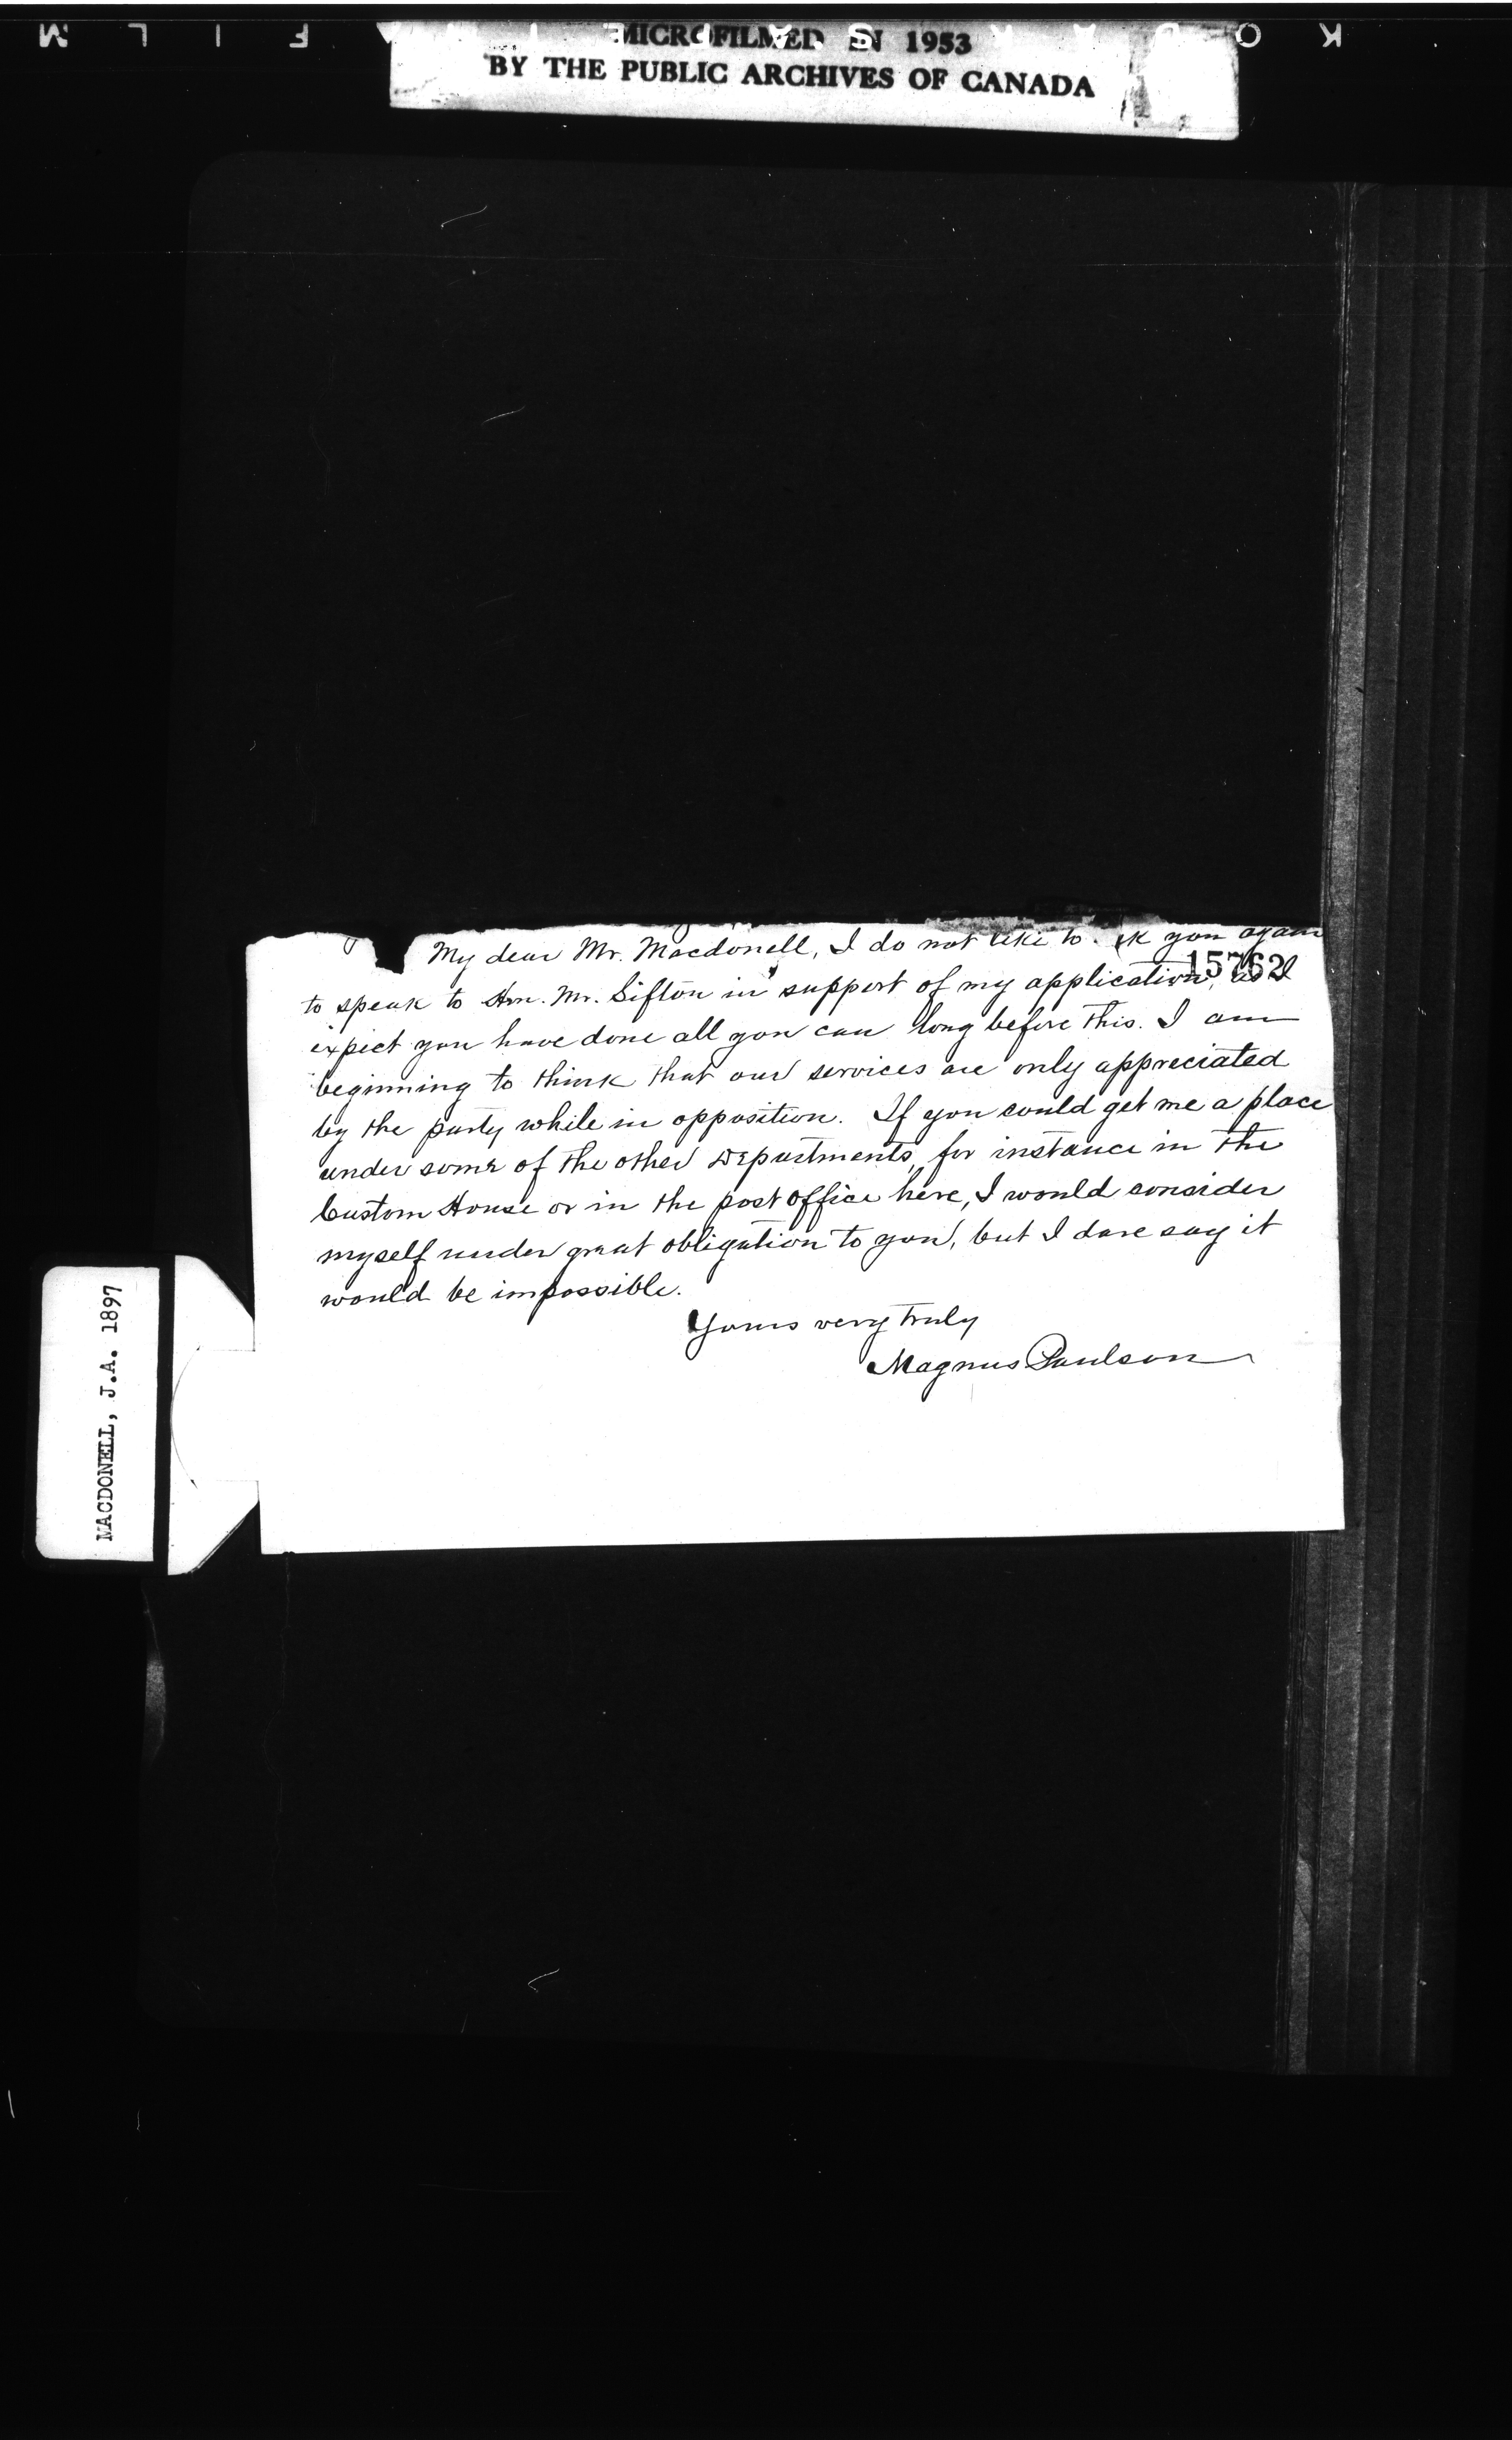 MICROFILMED IN 1953
BY THE PUBLIC ARCHIVES OF CANADA
My dear Mr. Macdonell, I do not like to you again
15762
to speak to Hon. Mr. Sifton in support of my application, as I
expect you have done all you can long before this. I am
beginning to think that our services are only appreciated
by the party while in opposition. If you could get me a place
under some of the other Departments, for instance in the
Custom House or in the post office here, I would consider
myself under great obligation to you, but I dare say it
would be impossible.
Yours very truly
Magnus Paulson
MACDONELL, J.A. 1897